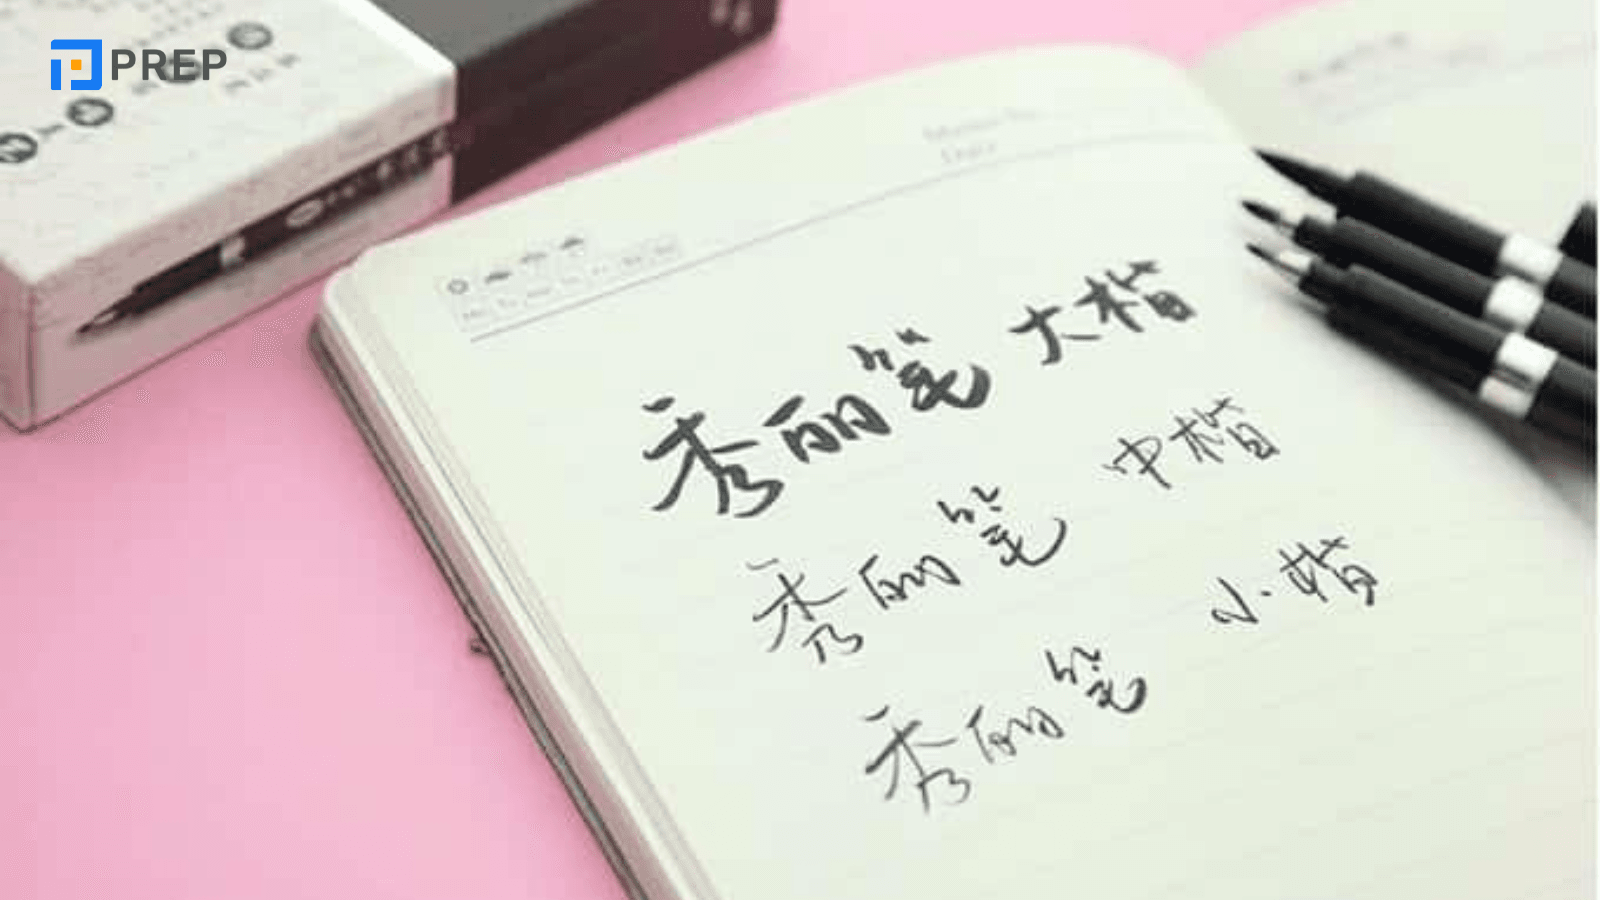 PREP
秀丽笔 大楷
秀丽笔 中楷
秀丽笔 小楷